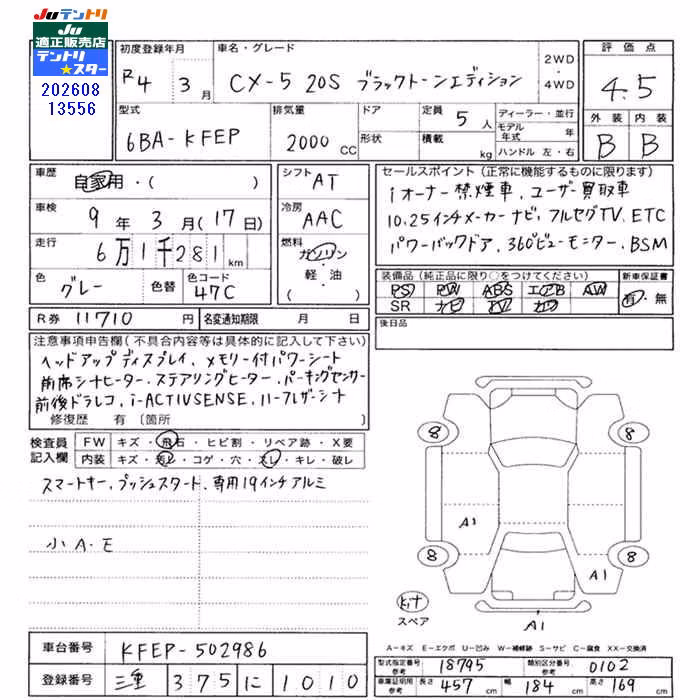 JUテントリ
JU
適正販売店
テントリ
★スター
202608
13556
初度登録年月
R4年 3月
車名・グレード
CX-5 20S ブラックトーンエディション
2WD
・
4WD
評価点
4.5
外装 内装
B B
型式
6BA-KFEP
排気量
2000 CC
ドア
形状
定員 5人
積載 kg
ディーラー・並行
モデル年式 年
ハンドル 左・右
車歴
自家用・( )
シフト AT
車検
9年 3月 (17日)
冷房 AAC
走行
6万1千281km
燃料
ガソリン
・
軽・油
( )
色
グレー
色替
色コード
47C
セールスポイント (正常に機能するものに限ります)
1オーナー禁煙車、ユーザー買取車
10.25インチメーカーナビ、フルセグTV、ETC
パワーバックドア、360°ビューモニター、BSM
装備品 (純正品に限り○をつけてください)
PS PW ABS エアB AW
SR ナビ TV カワ
新車保証書
有・無
R券 11710円
名変通知期限 月 日
後日品
注意事項申告欄(不具合内容等は具体的に記入して下さい)
ヘッドアップディスプレイ、メモリー付パワーシート
前席シートヒーター、ステアリングヒーター、パーキングセンサー
前後ドラレコ、i-ACTIVSENSE、ハーフレザーシート
修復歴 有 〔箇所
検査員
記入欄
FW キズ・飛石・ヒビ割・リペア跡・X要
内装 キズ・汚レ・コゲ・穴・スレ・キレ・破レ
スマートキー、プッシュスタート、専用19インチアルミ
小A・E
8 8
8 8
A1
A1
A1
キット
スペア
A-キズ E-エクボ U-凹み W-補修跡 S-サビ C-腐食 XX-交換済
車台番号 KFEP-502986
登録番号 三重 375 に 1010
型式指定番号 参考 18795
類別区分番号 参考 0102
車庫証明用 参考 長さ 457cm 幅 184cm 高さ 169cm